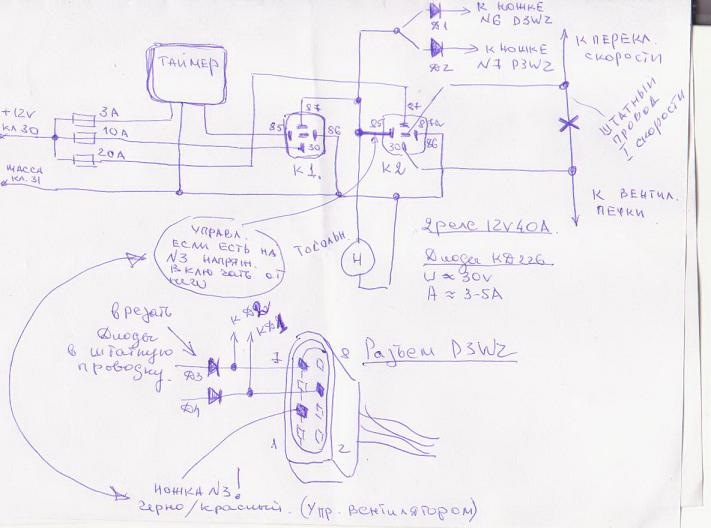 К НОЖКЕ
N6 D3WZ
Д1
К НОЖКЕ
N7 D3WZ
Д2
К ПЕРЕКЛ.
СКОРОСТИ
ТАЙМЕР
+12V
КЛ 30
3А
10А
20А
МАССА
КЛ. 31
87
85
86
30
К1.
87
85
87а
30
86
К2
ШТАТНЫЙ
ПРОВОД
I СКОРОСТИ
К ВЕНТИЛ.
ПЕЧКИ
2 реле 12V 40А.
Диоды КД226
U ≈ 30V
А ≈ 3-5А
УПРАВЛ.
ЕСЛИ ЕСТЬ НА
N3 НАПРЯЖ.
ВКЛЮЧАТЬ ОТ
НЕГО
Н
врезать
Диоды
в штатную
проводку.
К Д2
К Д1
Д3
Д4
7
8
1
2
Разъем D3WZ
НОЖКА N3!
Черно/красный. (Упр. вентилятором)